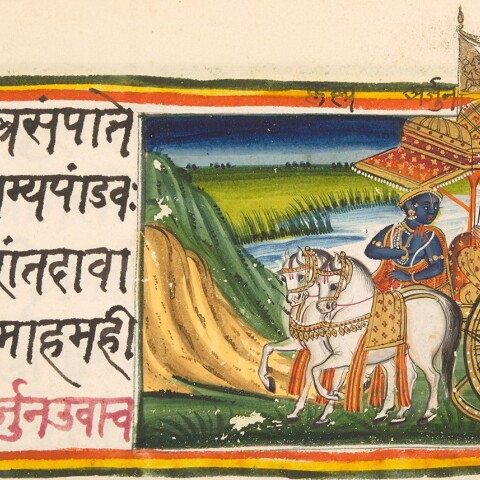 कृष्ण अर्जुन
त्रसंपाते
म्यपांडवः
शंतदावा
माहमही
र्जुनउवाच